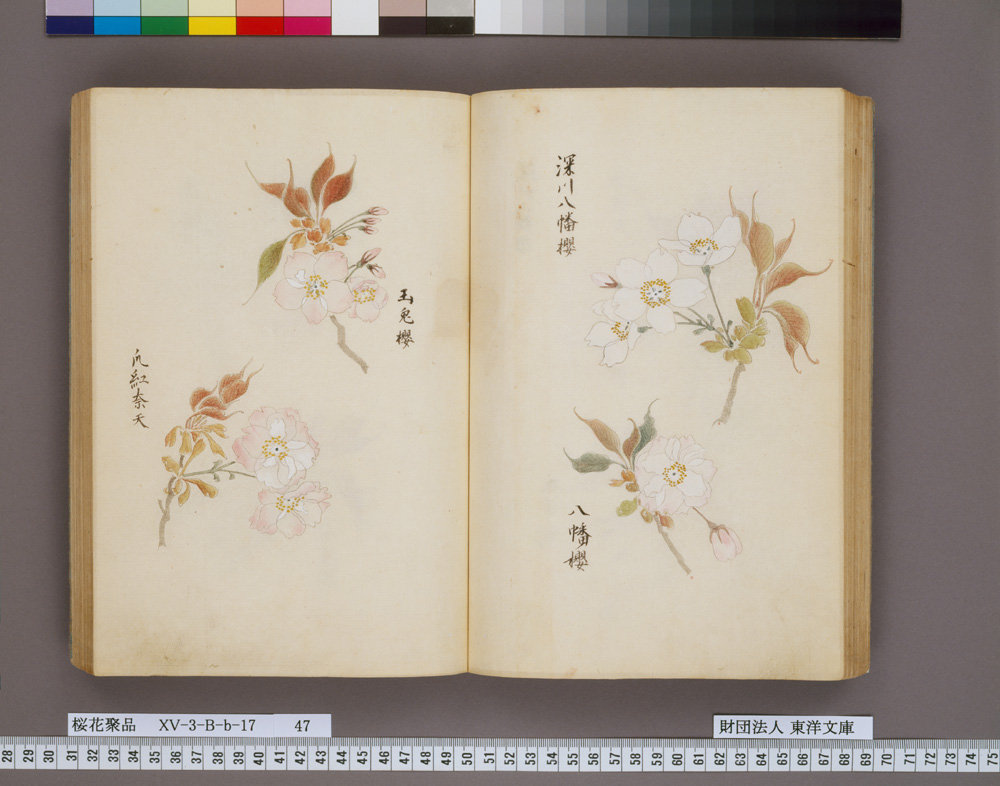 深川八幡櫻
八幡櫻
玉兎櫻
爪紅奈天
桜花聚品 XV-3-B-b-17 47
財団法人 東洋文庫
28 29 30 31 32 33 34 35 36 37 38 39 40 41 42 43 44 45 46 47 48 49 50 51 52 53 54 55 56 57 58 59 60 61 62 63 64 65 66 67 68 69 70 71 72 73 74 75